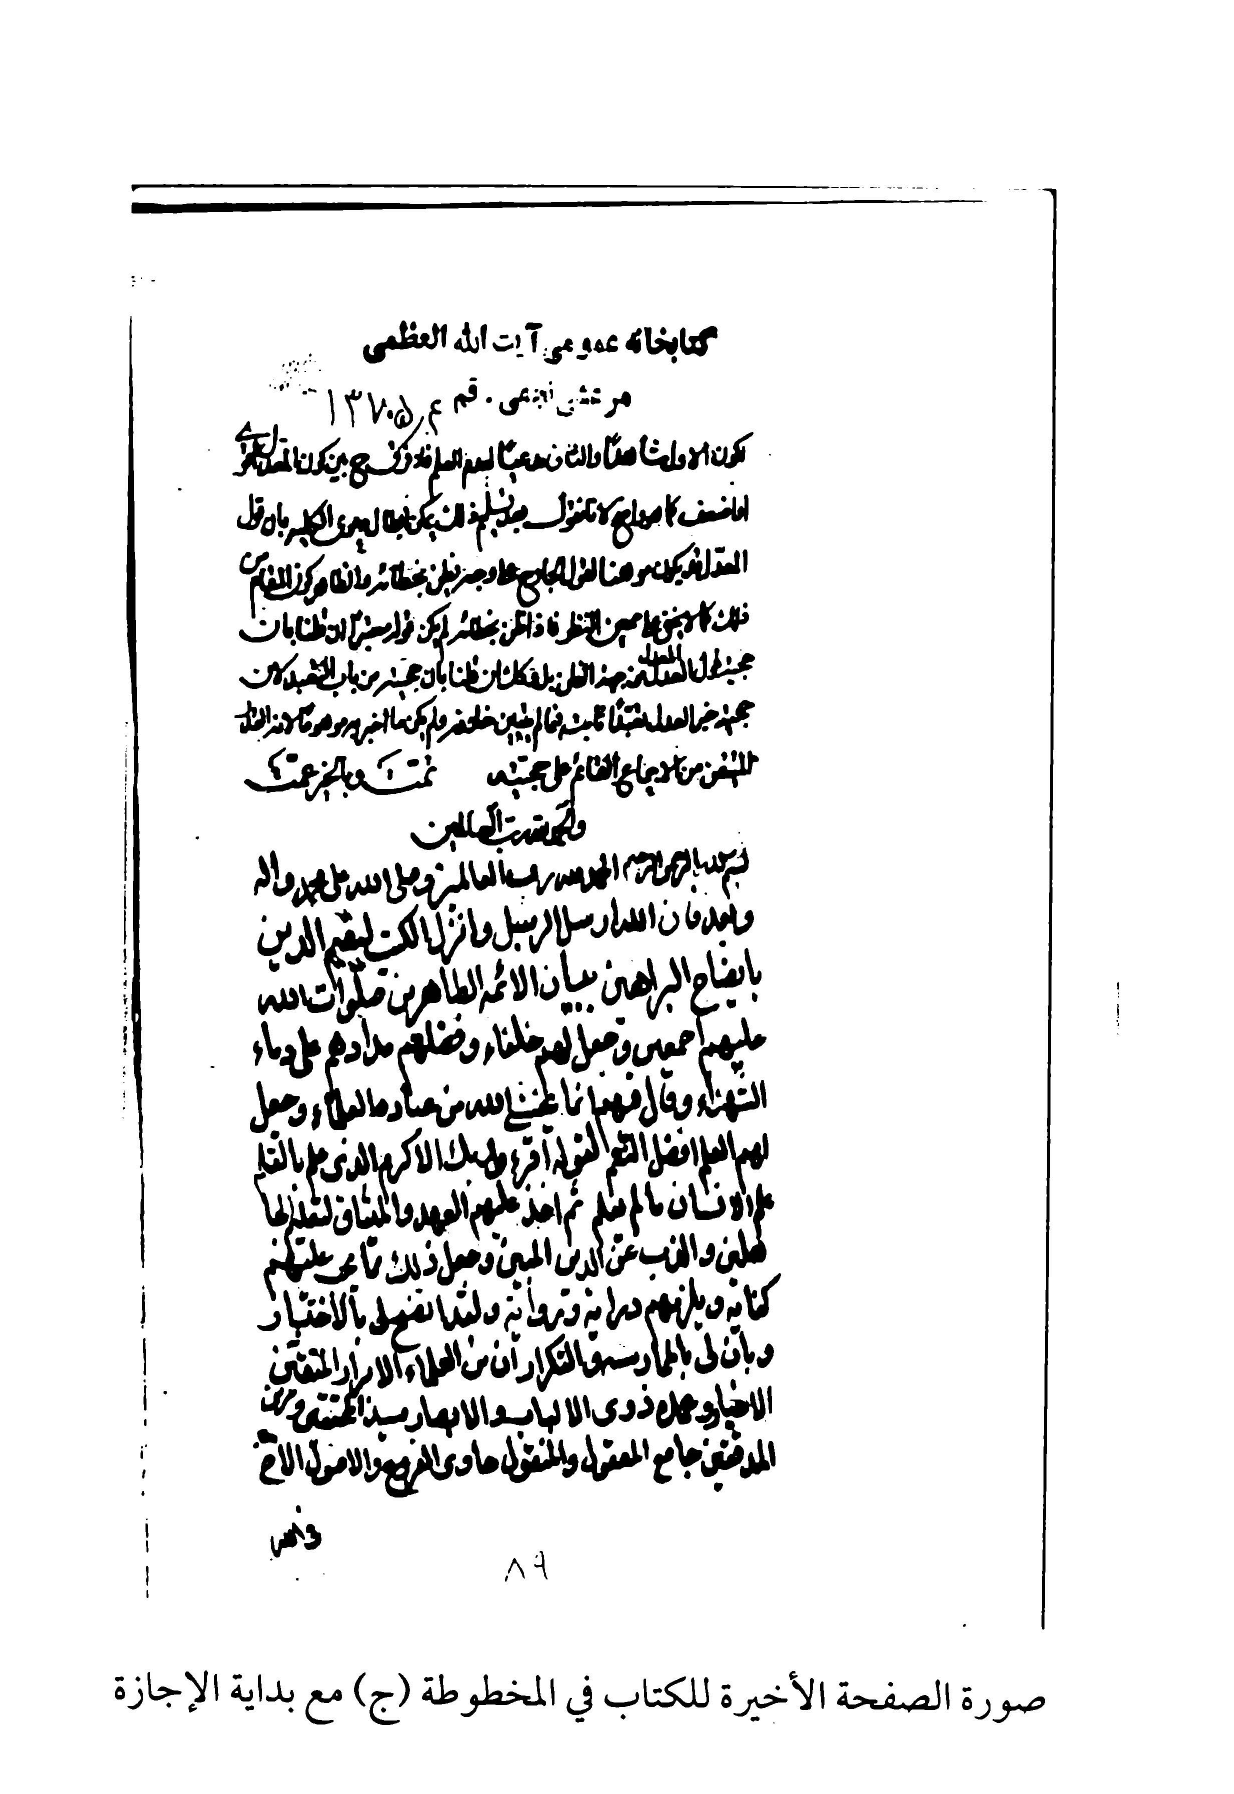 كتابخانه عمومى آيت الله العظمى
مرعشى نجفى . قم
يكون الاول شاهدًا والثانى مدعيًا لعدم العلم فلا فرق ح بين كون المعدل
اما ضعف كما هو واضح لا نا نقول بعد تسليم ذلك يمكن ابطال دعوى الكلية بان قول
المعدل قد يكون موهنا لقول الجارح على وجه يظن بخطائه والظاهر كون المقام من
ذلك كما لا يخفى على ممعن النظر فاذا ظن بخطائه لم يكن قوله معتبرًا لان ظنا بان
حجية قول العدل من جهة الظن بل وكك ان ظنا بان حجيته من باب التعبد لان
حجية خبر العدل تعبدًا ثابتة فيما لم يتبين خلافه ولم يكن ما اخبر به موهومًا لانه القدر
المتيقن من الاجماع القائم على حجيته تمت وبالخير عمت
والحمد لله رب العالمين
بسم الله الرحمن الرحيم الحمد لله رب العالمين وصلى الله على محمد واله
وبعد فان الله ارسل الرسل وانزل الكتب ليقيم الدين
بايضاح البراهين ببيان الائمة الطاهرين صلوات الله
عليهم اجمعين وجعل لهم خلفاء وفضلهم مدادهم على دماء
الشهداء وقال فيهم انما يخشى الله من عباده العلماء وجعل
لهم العلم افضل النعم لقوله اقرء وربك الاكرم الذى علم بالقلم
علم الانسان ما لم يعلم ثم اخذ عليهم العهد والميثاق لتعليم الجا
هلين والذب عن الدين المبين وجعل ذلك مما يجب عليهم
كفاية ويلزمهم دراية ورواية ولقد اتضح لى بالاختبار
وبان لى بالممارسة والتكرار ان من العلماء الابرار المتقين
الاخيار وجملة ذوى الالباب والابصار
المدققين جامع المعقول والمنقول حاوى الفروع والاصول الاخ
٨٩
صورة الصفحة الأخيرة للكتاب في المخطوطة (ج) مع بداية الإجازة